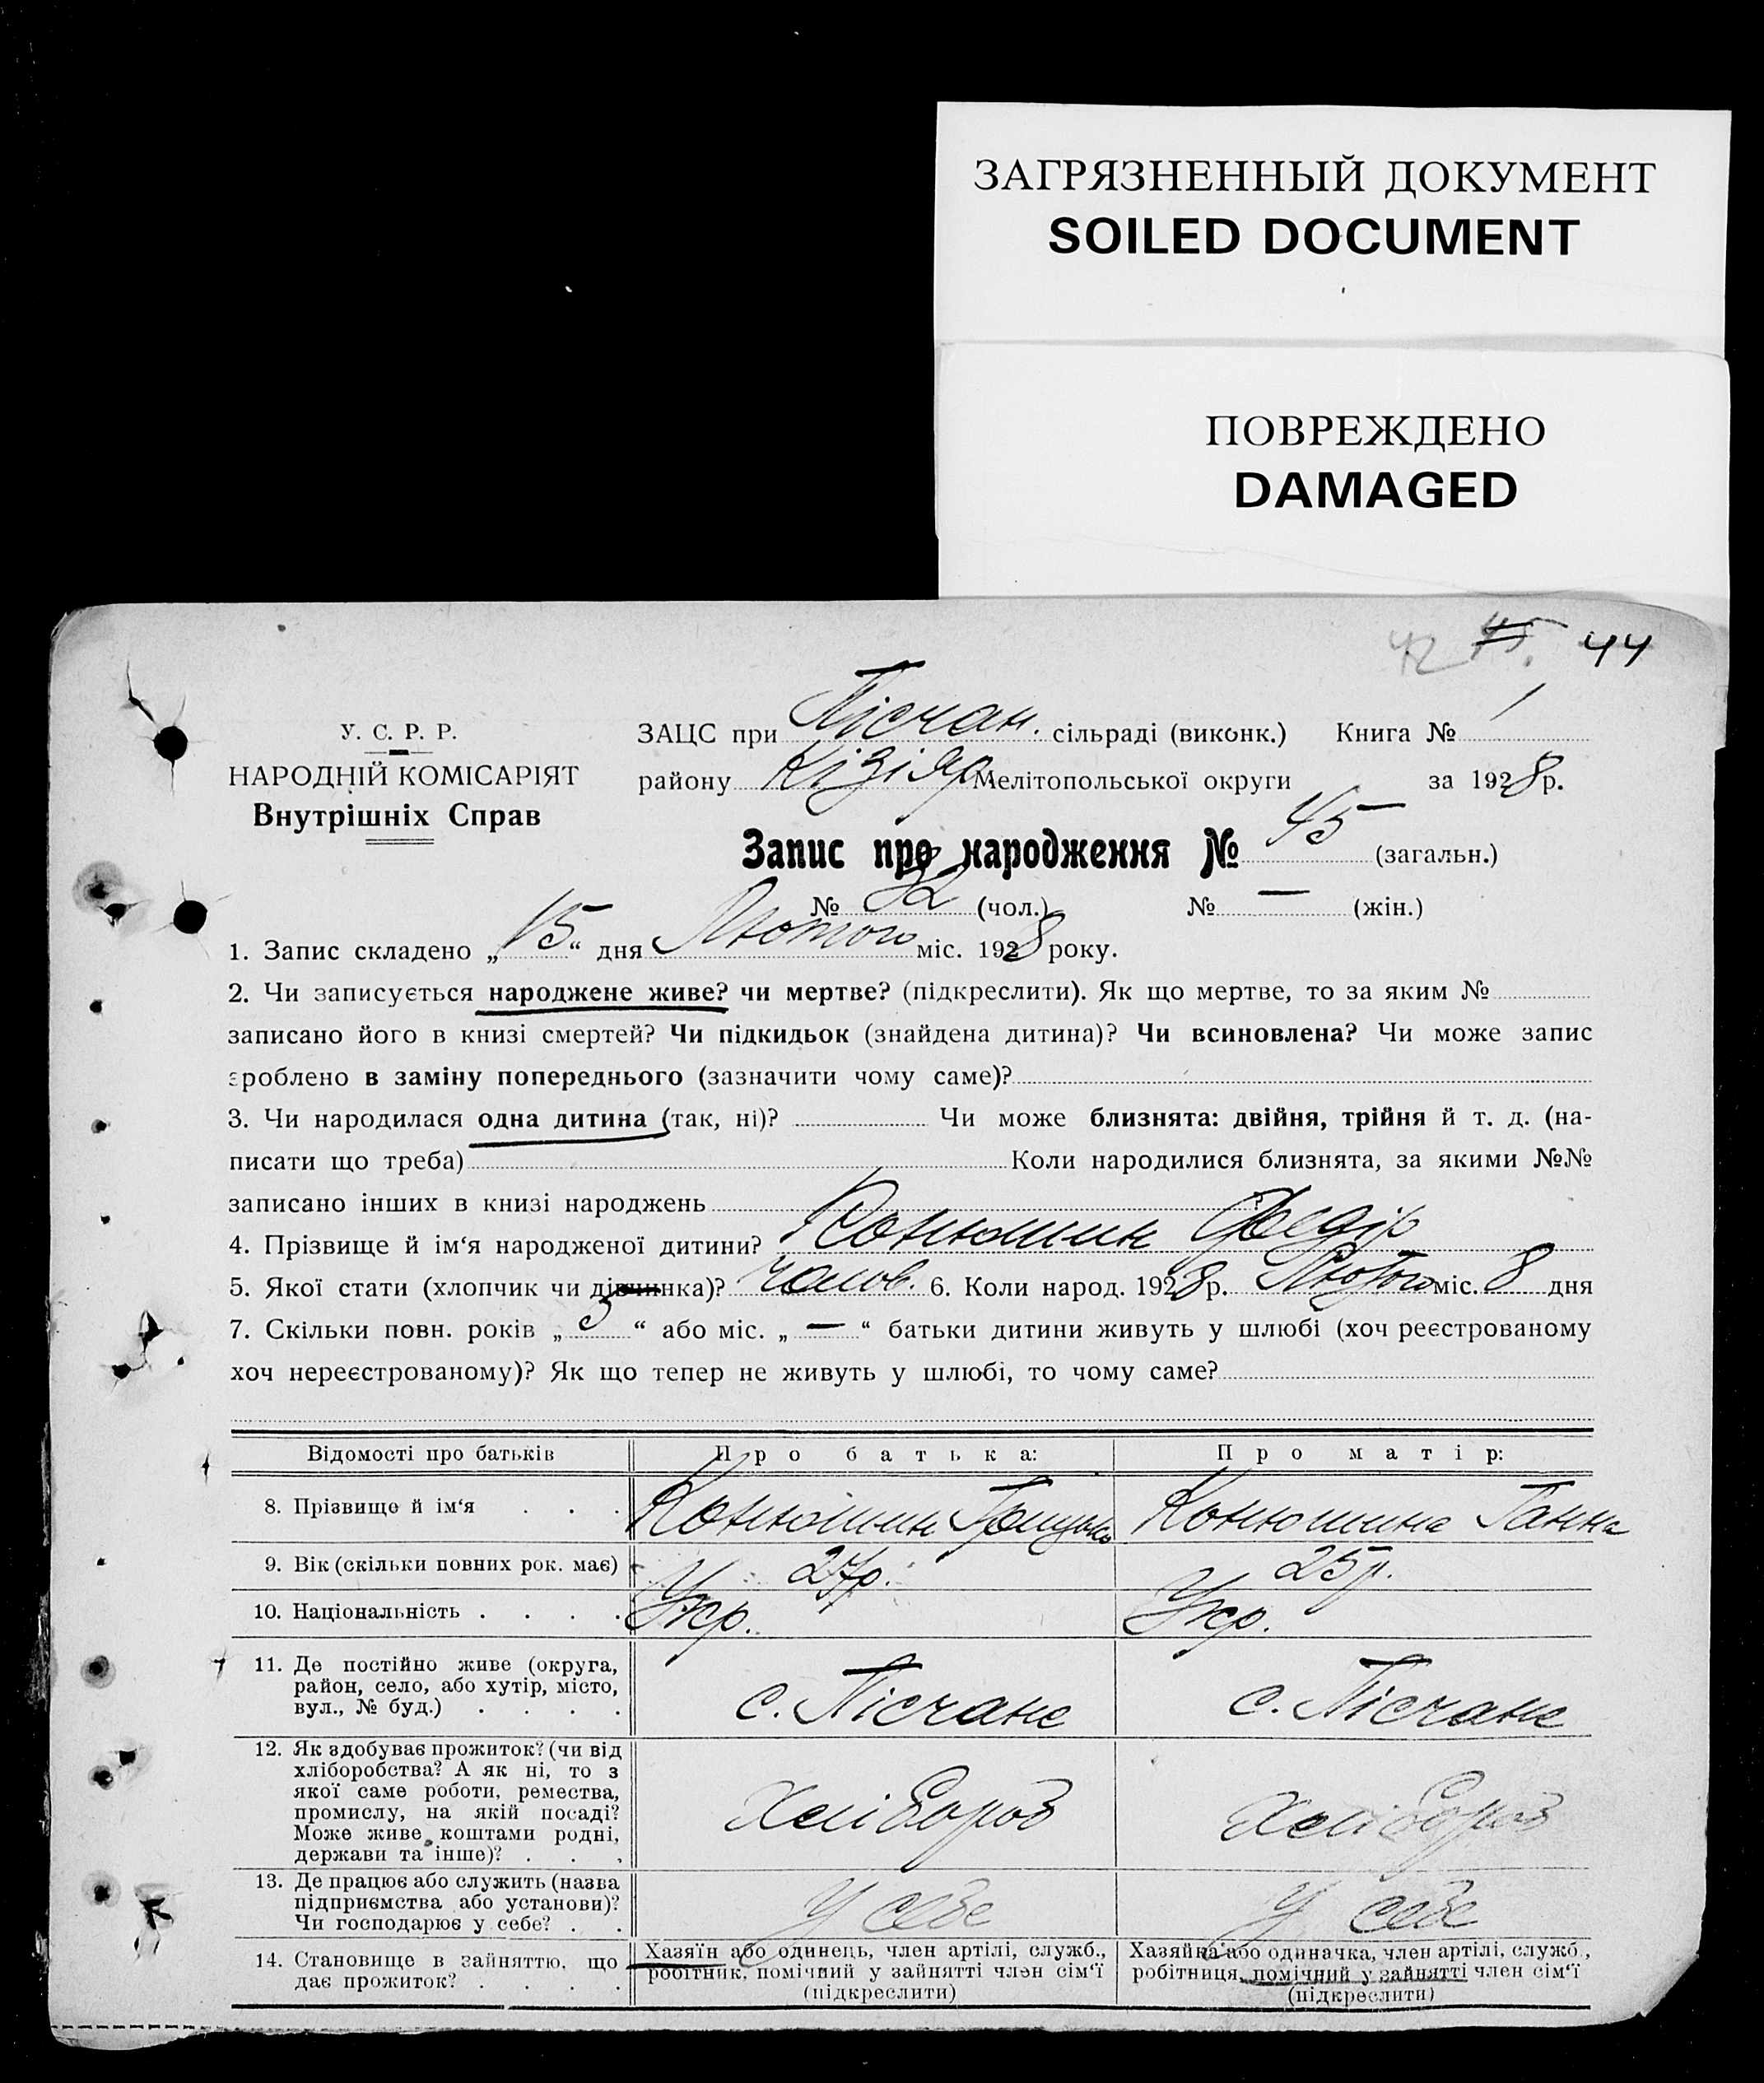 ЗАГРЯЗНЕННЫЙ ДОКУМЕНТ
SOILED DOCUMENT
ПОВРЕЖДЕНО
DAMAGED
42 45. 44
У. С. Р. Р.
НАРОДНІЙ КОМІСАРІЯТ
Внутрішніх Справ
ЗАЦС при Пісчан. сільраді (виконк.) Книга № 1
району Кізіяр Мелітопольської округи за 1928 р.
Запис про народження № 45 (загальн.)
№ 32 (чол.) № — (жін.)
1. Запис складено „15“ дня Лютого міс. 1928 року.
2. Чи записується народжене живе? чи мертве? (підкреслити). Як що мертве, то за яким №
записано його в книзі смертей? Чи підкидьок (знайдена дитина)? Чи всиновлена? Чи може запис
зроблено в заміну попереднього (зазначити чому саме)?
3. Чи народилася одна дитина (так, ні)? Чи може близнята: двійня, трійня й т. д. (на-
писати що треба) Коли народилися близнята, за якими №№
записано інших в книзі народжень
4. Прізвище й ім‘я народженої дитини? Конюшин Федір
5. Якої стати (хлопчик чи дівчинка)? чолов. 6. Коли народ. 1928 р. Лютого міс. 8 дня
7. Скільки повн. років „3“ або міс. „—“ батьки дитини живуть у шлюбі (хоч реєстрованому
хоч нереєстрованому)? Як що тепер не живуть у шлюбі, то чому саме?
Відомості про батьків Про батька: Про матір:
8. Прізвище й ім‘я . . . Конюшин Грицько Конюшина Ганна
9. Вік (скільки повних рок. має) 27р. 25р.
10. Національність . . . . Укр. Укр.
11. Де постійно живе (округа,
район, село, або хутір, місто,
вул., № буд.) . . . .
с. Пісчане с. Пісчане
12. Як здобуває прожиток? (чи від
хліборобства? А як ні, то з
якої саме роботи, ремества,
промислу, на якій посаді?
Може живе коштами родні,
держави та інше)? . . .
Хлібороб Хлібороб
13. Де працює або служить (назва
підприємства або установи)?
Чи господарює у себе? . .
У себе У себе
14. Становище в зайняттю, що
дає прожиток? . . . .
Хазяїн або одинець, член артілі, служб.,
робітник, помічний у зайнятті член сім‘ї
(підкреслити)
Хазяйка або одиначка, член артілі, служб.,
робітниця, помічний у зайнятті член сім‘ї
(підкреслити)